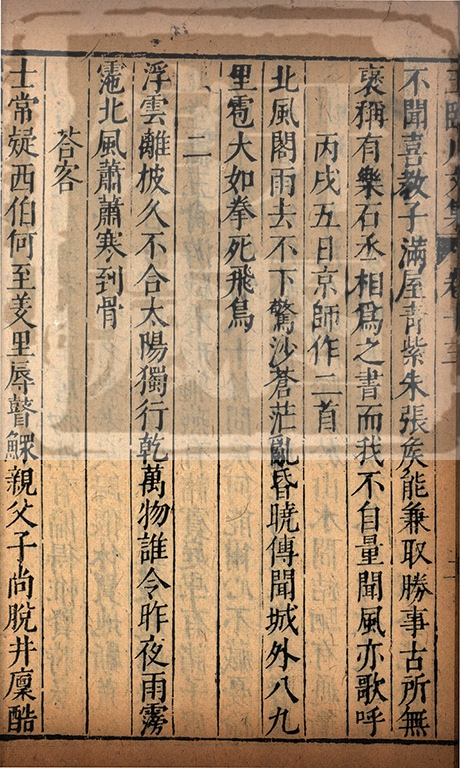 不聞喜教子滿屋青紫朱張矣能兼取勝事古所無
褒稱有樂石丞相爲之書而我不自量聞風亦歌呼
丙戌五日京師作二首
北風閣雨去不下驚沙蒼茫亂昏曉傳聞城外八九
里雹大如拳死飛鳥
二
浮雲離披久不合太陽獨行乾萬物誰令昨夜雨霧
霶北風蕭蕭寒到骨
荅客
士常疑西伯何至羑里辱瞽鰥親父子尚脫井廩酷